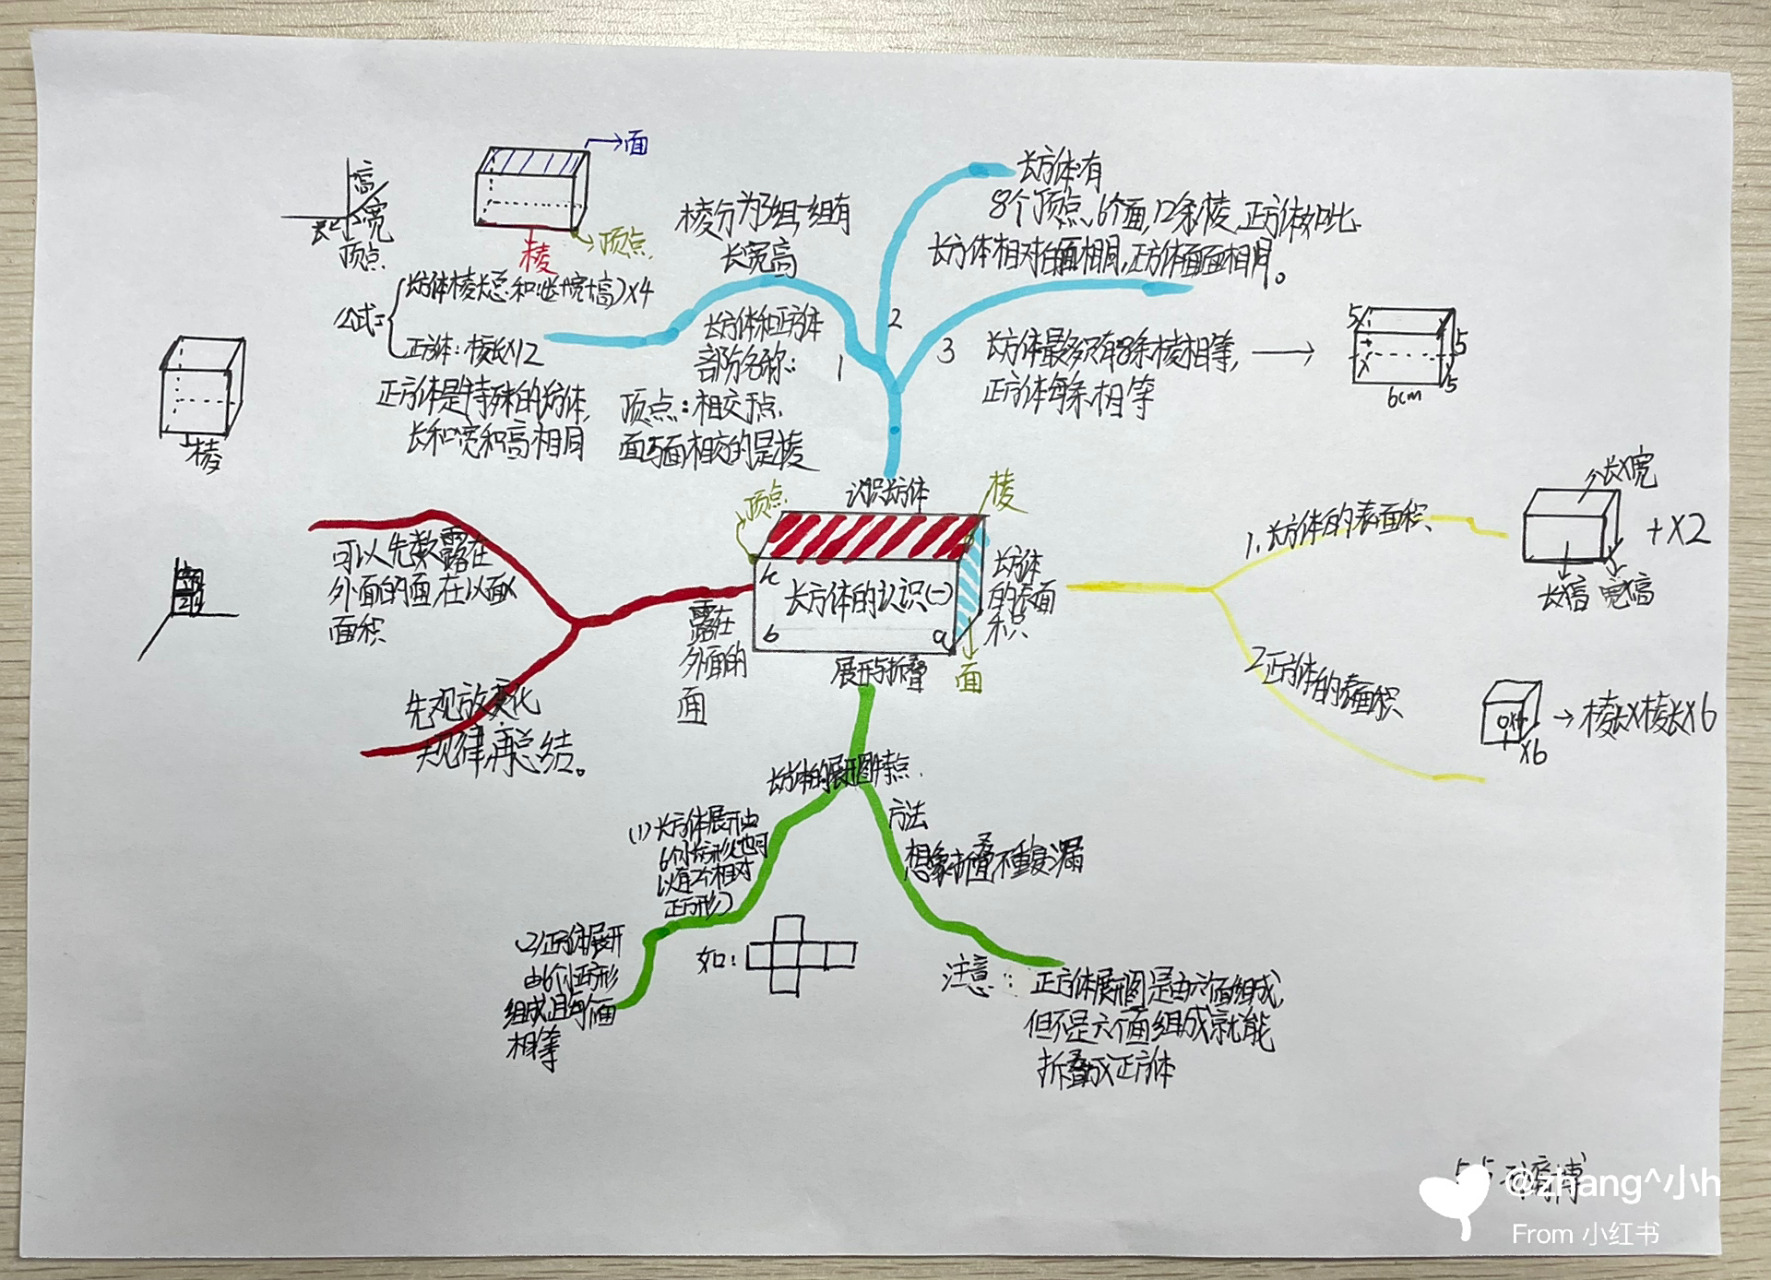 面
高
宽
顶点
棱
顶点
公式:
长方体棱长总和:(长+宽+高)×4
正方体:棱长×12
正方体是特殊的长方体,
长和宽和高相同
棱
棱分为3组一组有
长宽高
长方体和正方体
部分名称:
1
顶点:相交于点.
面与面相交的是棱
2
长方体有
8个顶点、6个面,12条棱,正方体如此
长方体相对的面相同,正方体面面相同。
3
长方体最多只有8条棱相等,
正方体每条相等
5
5
5
6cm
认识长方体
顶点
棱
长方体的认识(一)
b
a
面
长方体
的表面
积
展开与折叠
露在
外面的
面
可以先数露在
外面的面在以面×
面积
先观放变化
规律,再总结。
1.长方体的表面积
长×宽
+×2
长×高 宽×高
2正方体的表面积
×6
→棱长×棱长×6
长方体的展开图特点.
(1)长方体展开由
6个长方形(也可
以有2个相对
正方形)
(2)正方体展开
由6个正方形
组成,且每个面
相等
如:
方法
想象折叠不重复漏
注意:
正方体展开图是由六个面组成,
但不是六个面组成就能
折叠成正方体
@zhang^小h
From 小红书